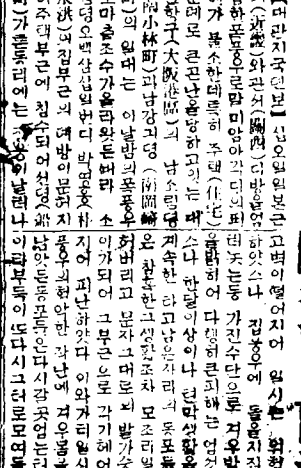 【대판지국뎐보】 십오일일본근
(近畿)와관서(關西)디방을엄
습한폭풍우로말미암아각디의피
가 불소한데특히 주택(住宅)
문뎨로 큰곤난을당하고잇는 대
(大阪港區)의 남소림뎡
南小林町)과남강긔뎡(南岡崎
의 일대는 이날밤의폭풍우
조수가올라왓든바라 소
림뎡오백삼십일번디 박영동(朴
의집부근의 예방이문허지
어주택부근에 침수되어선뎡(船
가튼동리에는 이날리나
고벽이떨어지어 일시는 위험
하얏스나 집응우에 돌을지질
러놋는등 가진수단으로 겨우방
을밝히어 다행히큰피해는 업섯
스나 한달이상이나 텬막생활을
계속한 타고남은자리의 동포들
은 참혹한그생활조차 모조리일
허버리고 문자그대로의 발가숭
이가되어 그부근으로 각기헤어
지어 피난하얏다 이와가티일시
풍우의험악한 작난에 겨우몸을
남앗든동포들은다시갈곳업는터
이라부득이또다시그터로모여들